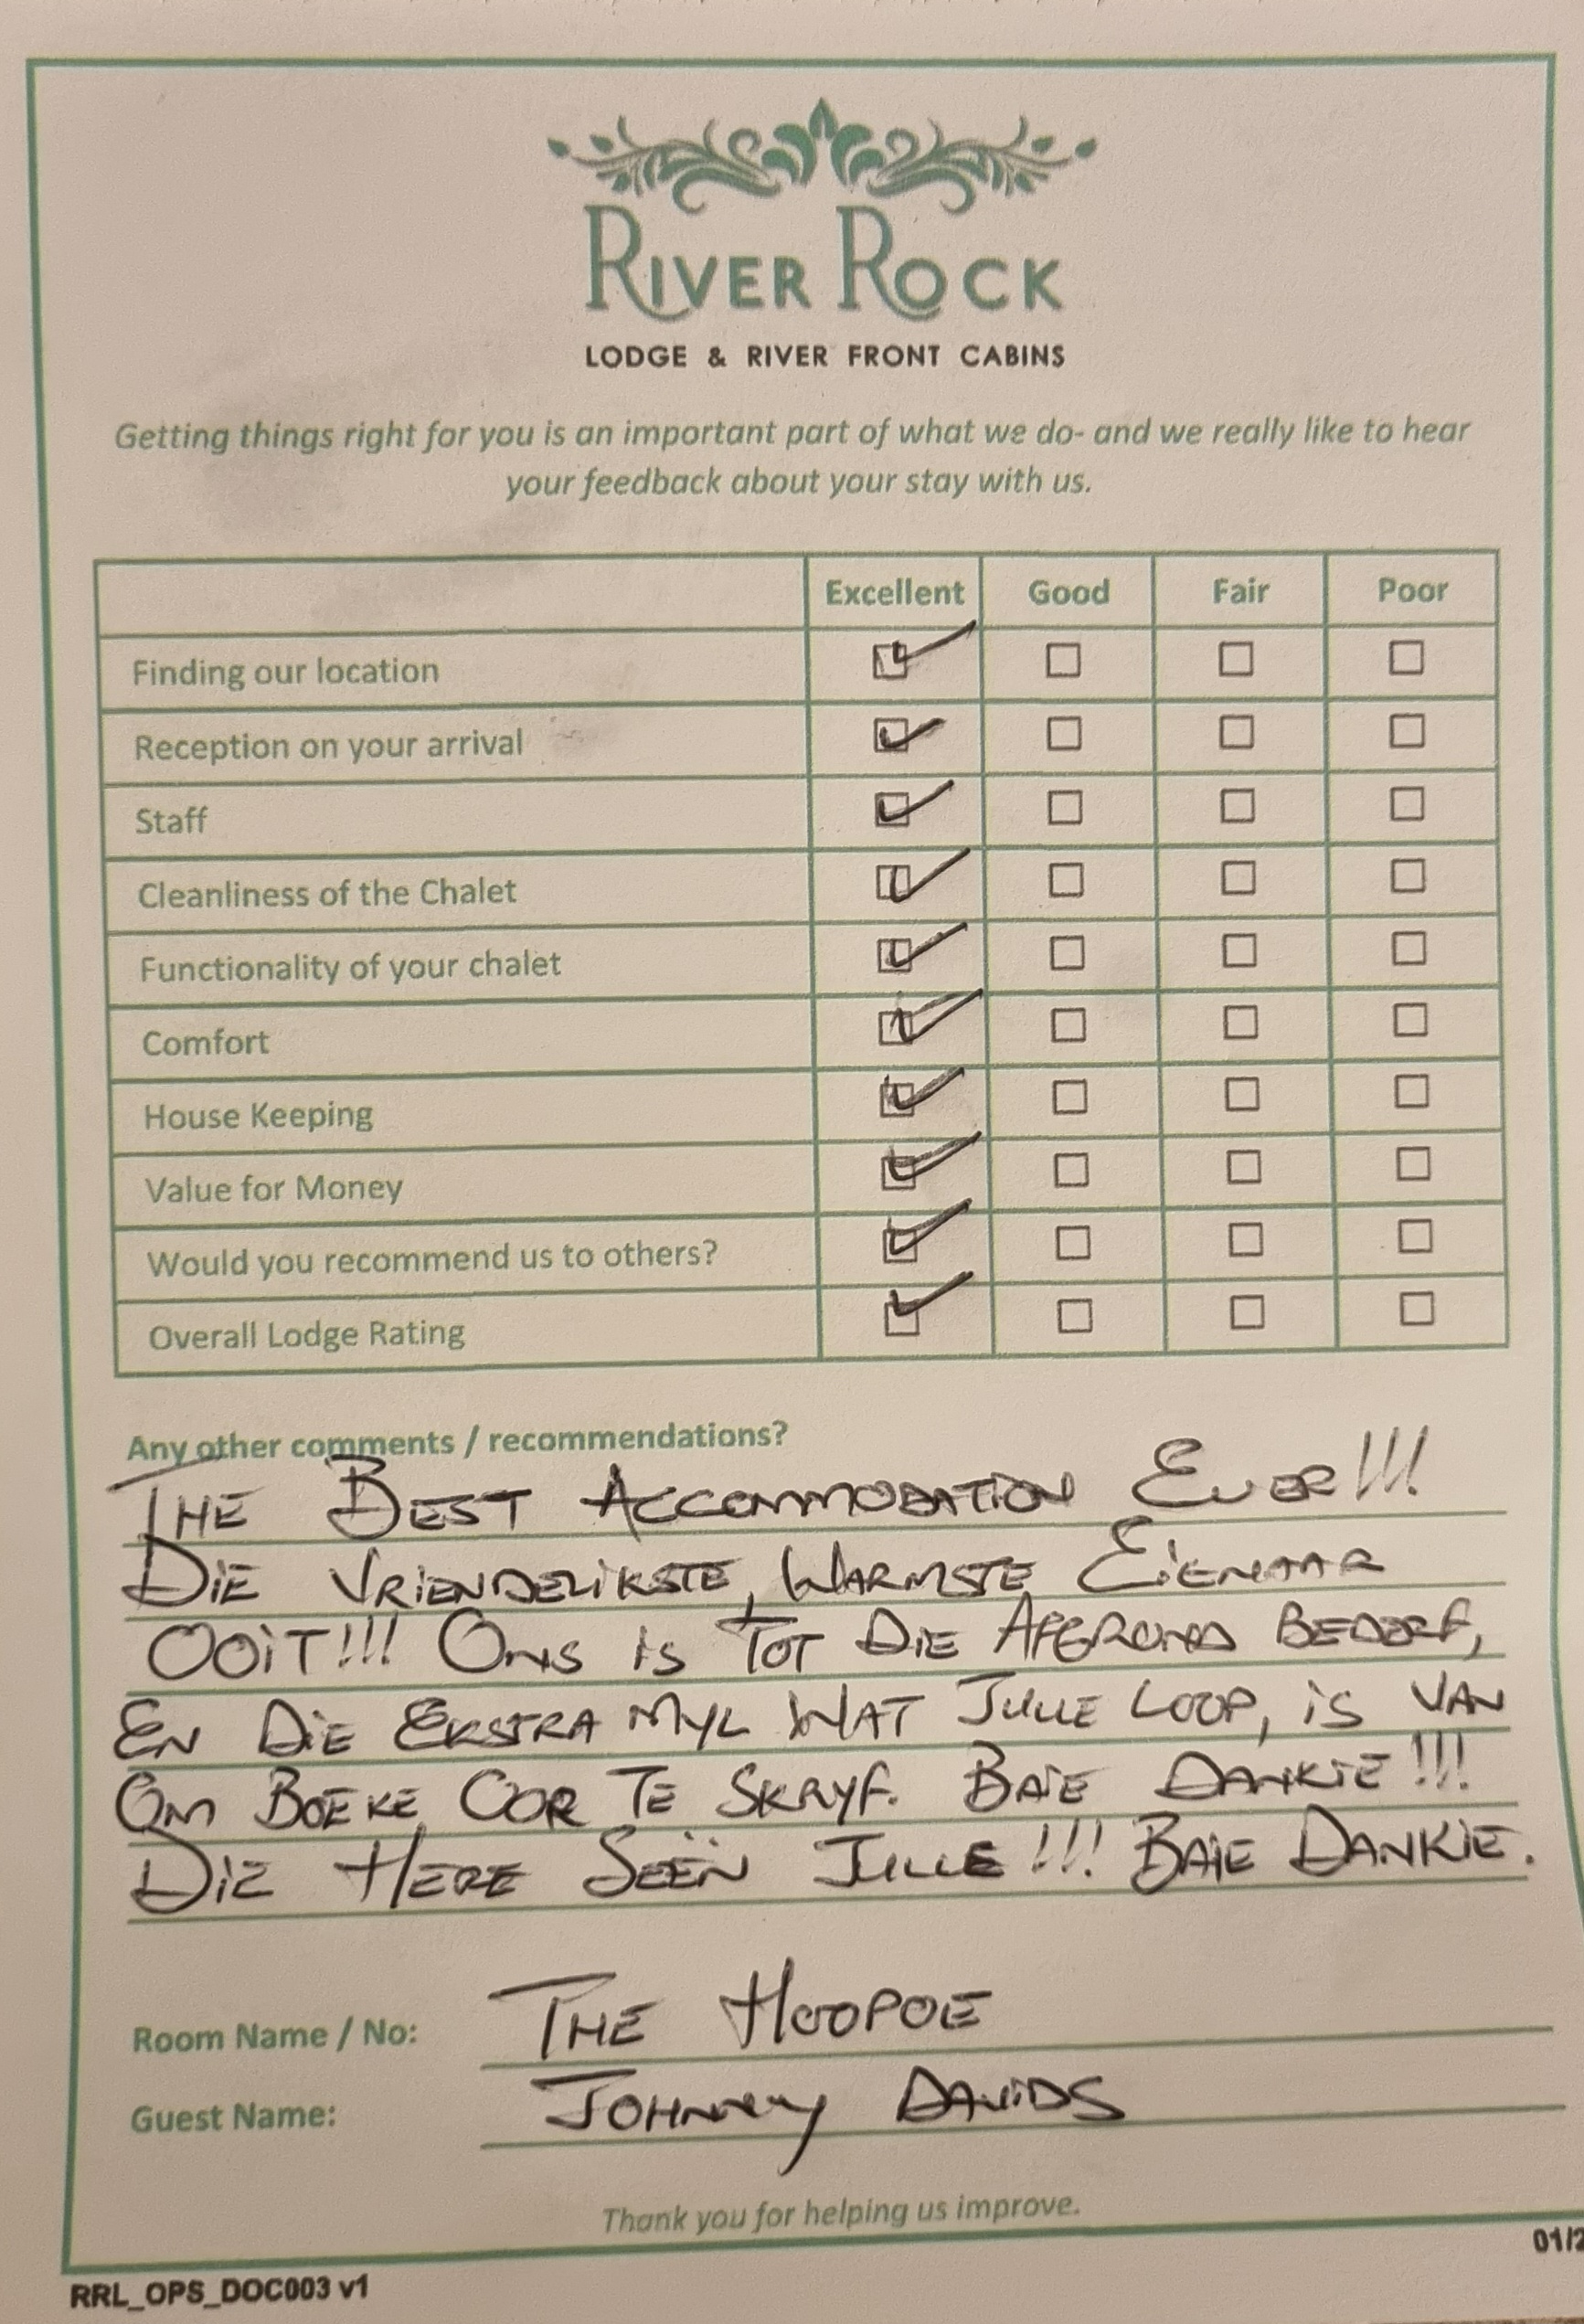 RIVER ROCK
LODGE & RIVER FRONT CABINS
Getting things right for you is an important part of what we do- and we really like to hear
your feedback about your stay with us.
Excellent Good Fair Poor
Finding our location
Reception on your arrival
Staff
Cleanliness of the Chalet
Functionality of your chalet
Comfort
House Keeping
Value for Money
Would you recommend us to others?
Overall Lodge Rating
Any other comments / recommendations?
THE BEST ACCOMMODATION EVER!!!
DIE VRIENDELIKSTE, WARMSTE EIENAAR
OOIT!!! ONS IS TOT DIE AFGROND BEDORF,
EN DIE EKSTRA MYL WAT JULLE LOOP, IS VAN
OM BOEKE OOR TE SKRYF. BAIE DANKIE!!!
DIE HERE SEËN JULLE!!! BAIE DANKIE.
Room Name / No: THE HOOPOE
Guest Name: JOHNNY DAVIDS
Thank you for helping us improve.
01/2
RRL_OPS_DOC003 v1